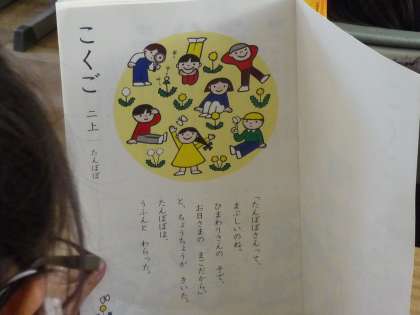 こくご
二上
たんぽぽ
「たんぽぽさんって、
まぶしいのね。
ひまわりさんの 子で、
お日さまの まごだから。」
と、ちょうちょうが きいた。
たんぽぽは、
うふんと わらった。